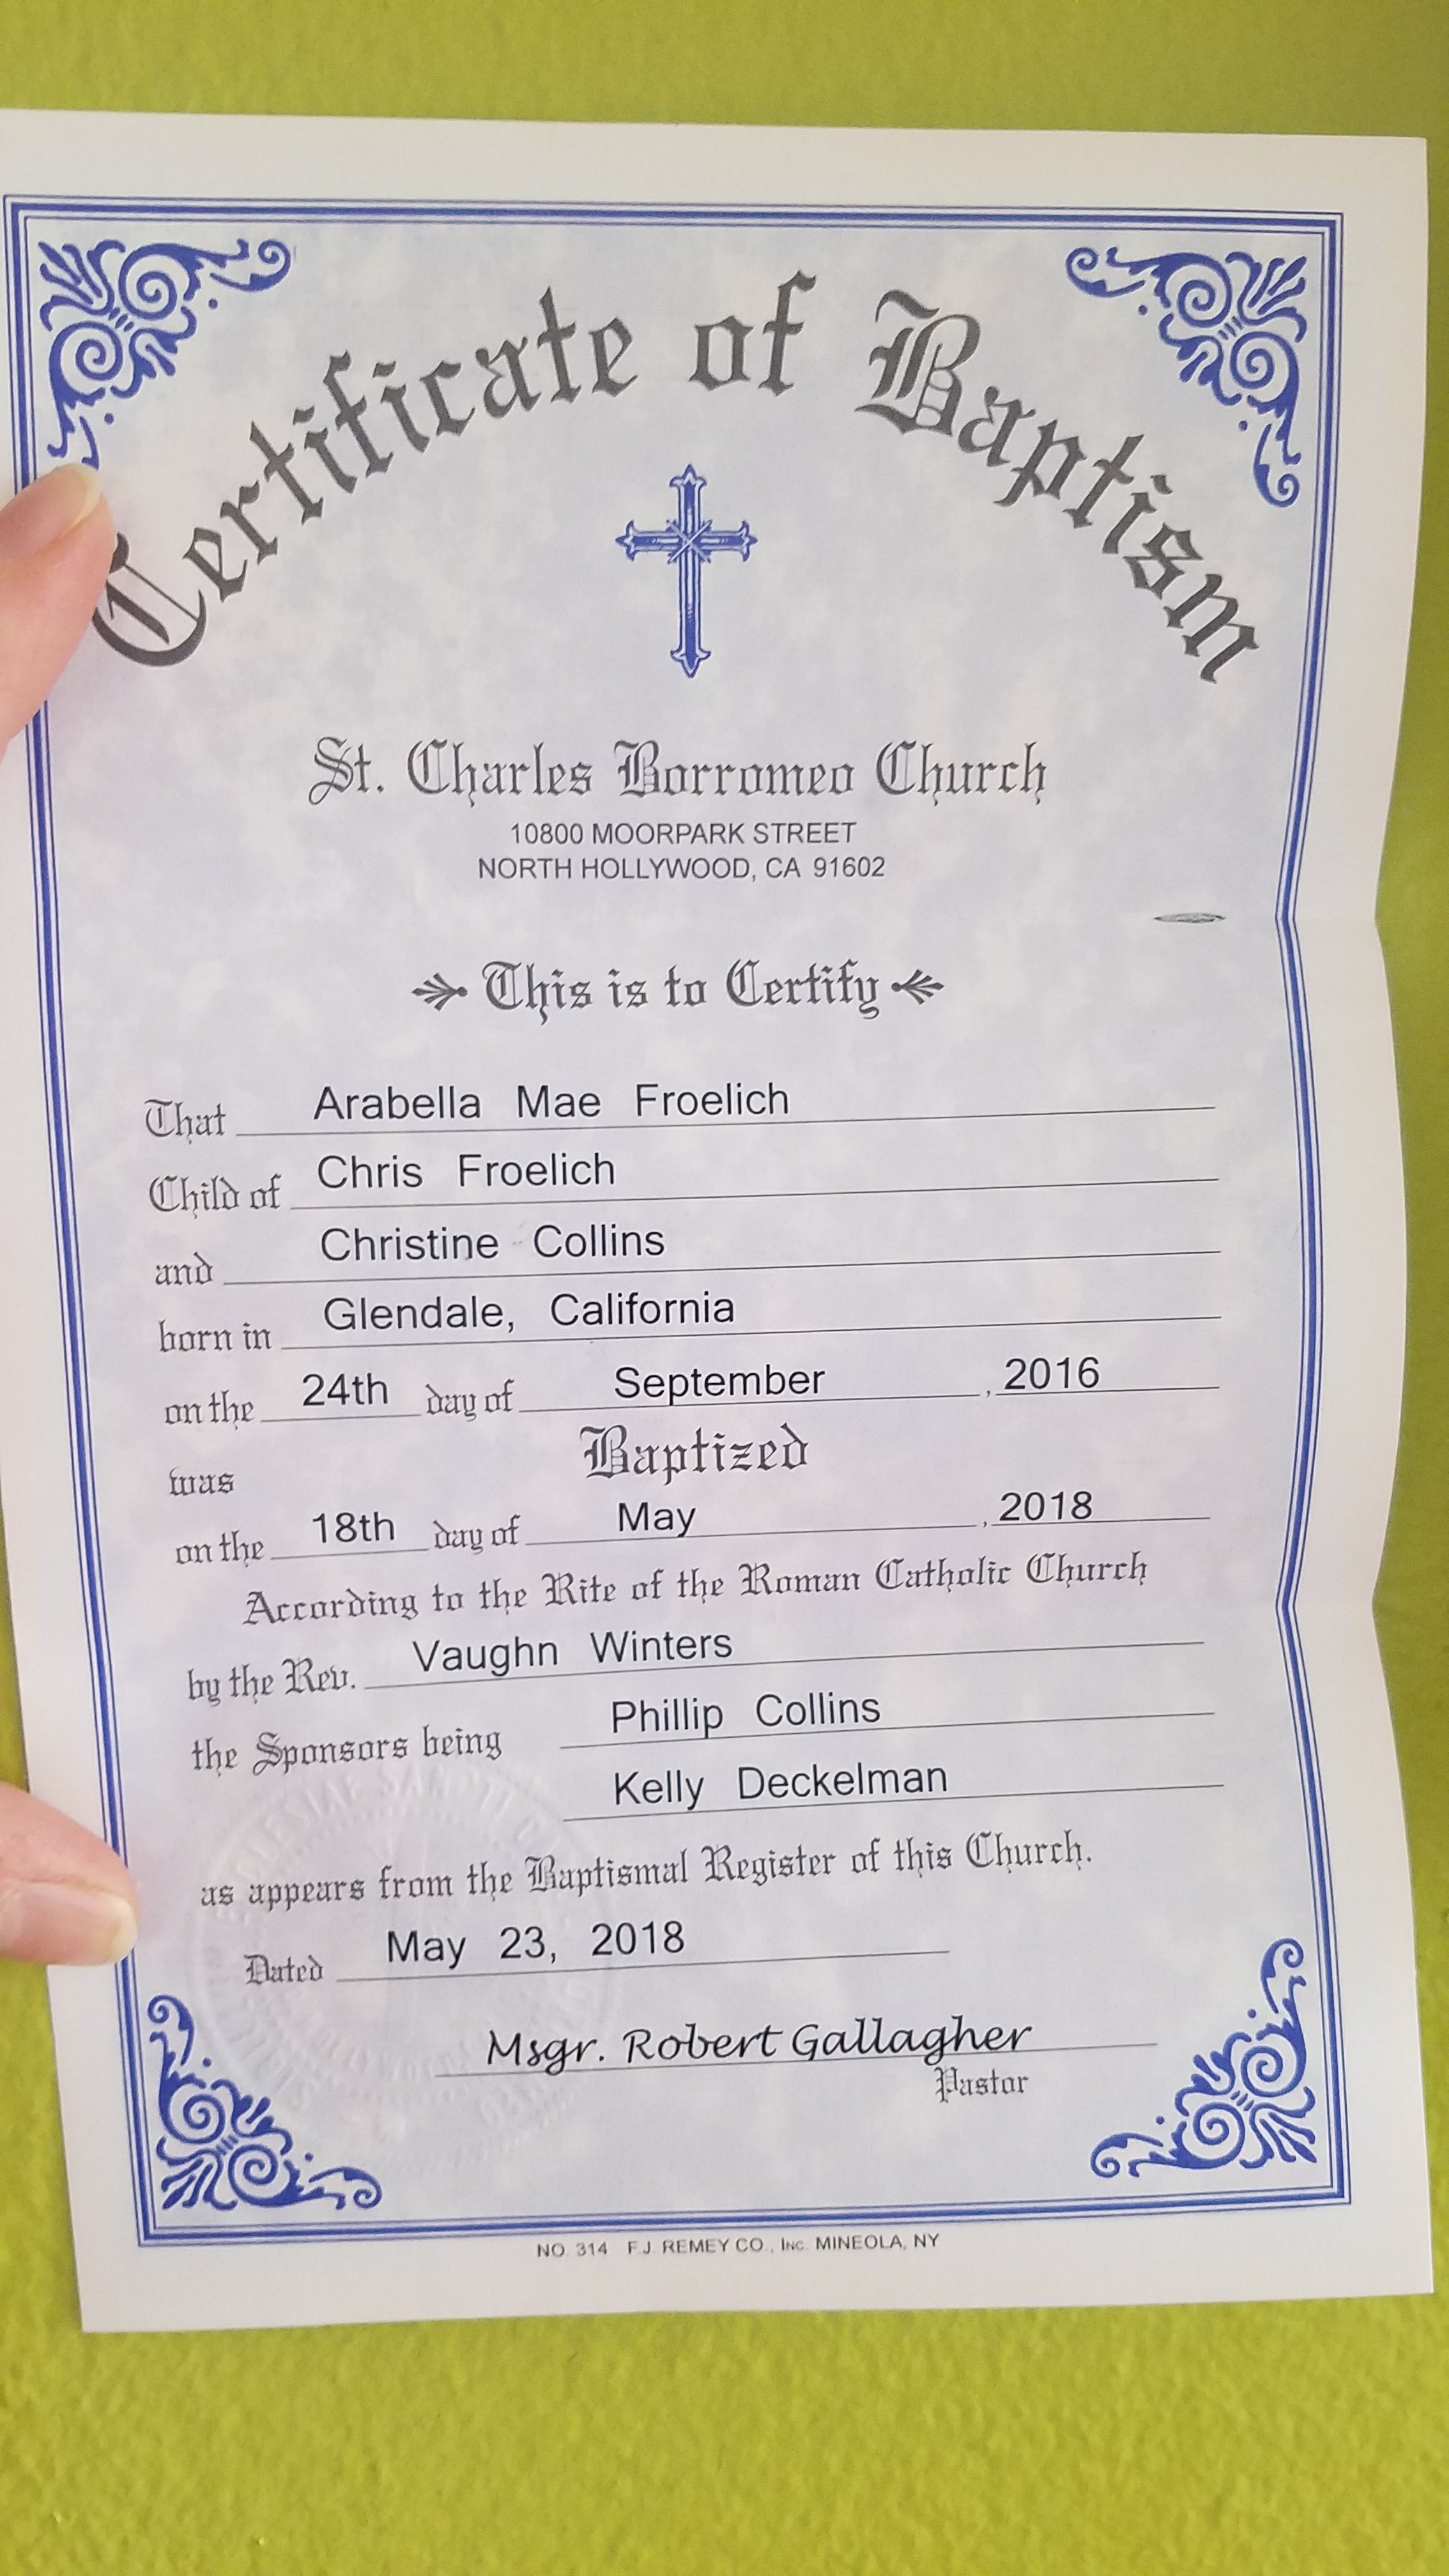 Certificate of Baptism
St. Charles Borromeo Church
10800 MOORPARK STREET
NORTH HOLLYWOOD, CA 91602
This is to Certify
That Arabella Mae Froelich
Child of Chris Froelich
and Christine Collins
born in Glendale, California
on the 24th day of September, 2016
was Baptized
on the 18th day of May, 2018
According to the Rite of the Roman Catholic Church
by the Rev. Vaughn Winters
the Sponsors being Phillip Collins
Kelly Deckelman
as appears from the Baptismal Register of this Church.
Dated May 23, 2018
Msgr. Robert Gallagher
Pastor
NO. 314 F.J. REMEY CO., Inc. MINEOLA, NY